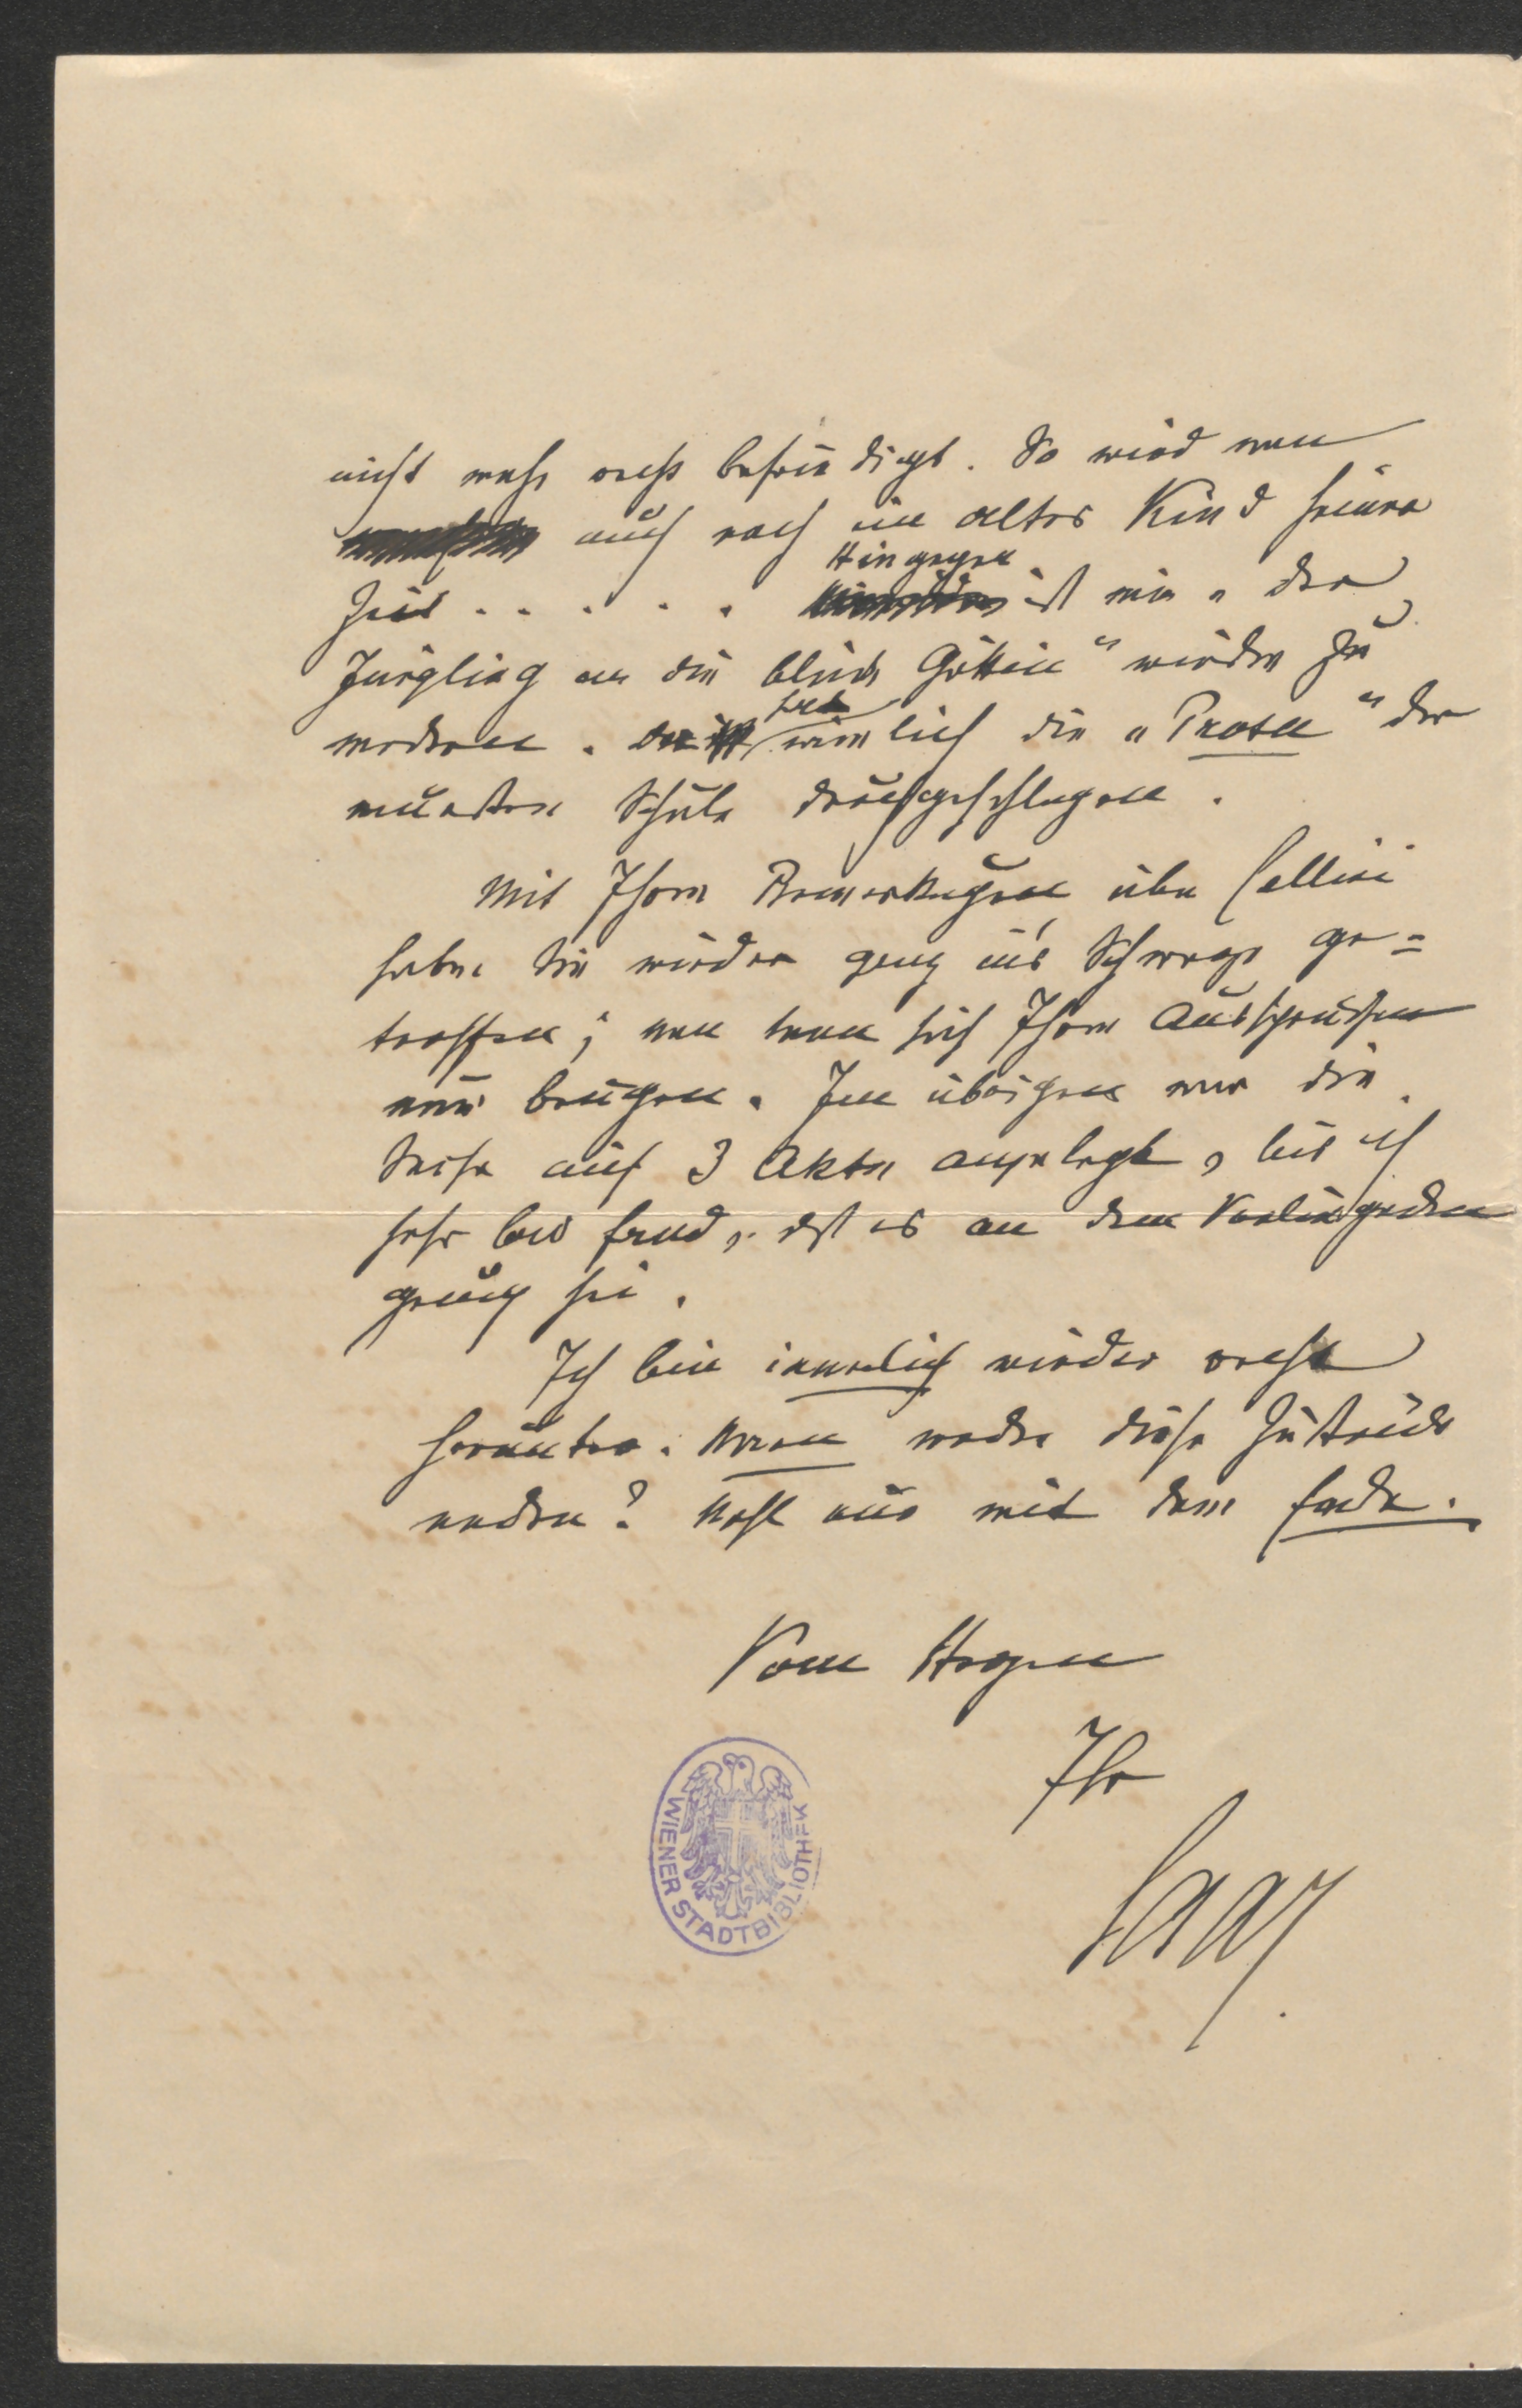 nicht mehr recht befriedigt. So wird man
auch noch im Alter Kind seiner
Hingegen
Zeit . . . . . ist mir „der
Jüngling an die blinde Göttin“ wieder zu
modern. hat
sich die „Prosa“ der
neuesten Schule draufgeschlagen.
Mit Ihren Bemerkungen über Cellini
haben Sie wieder ganz in's Schwarze ge=
troffen; man kann sich Ihren Aussprüchen
nur beugen. Im übrigen war die
Sache auf 3 Akte angelegt, bis ich
sehr bald fand, daß es an dem Vorliegenden
genug sei.
Ich bin innerlich wieder recht
herunter. Wann werden diese Zustände
enden? Wohl nur mit dem Ende.
Vom Herzen
Ihr
Saar
WIENER STADTBIBLIOTHEK